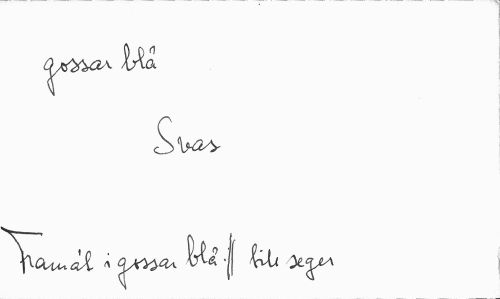 gossar blå
Svas
Framåt i gossar blå :|| seger